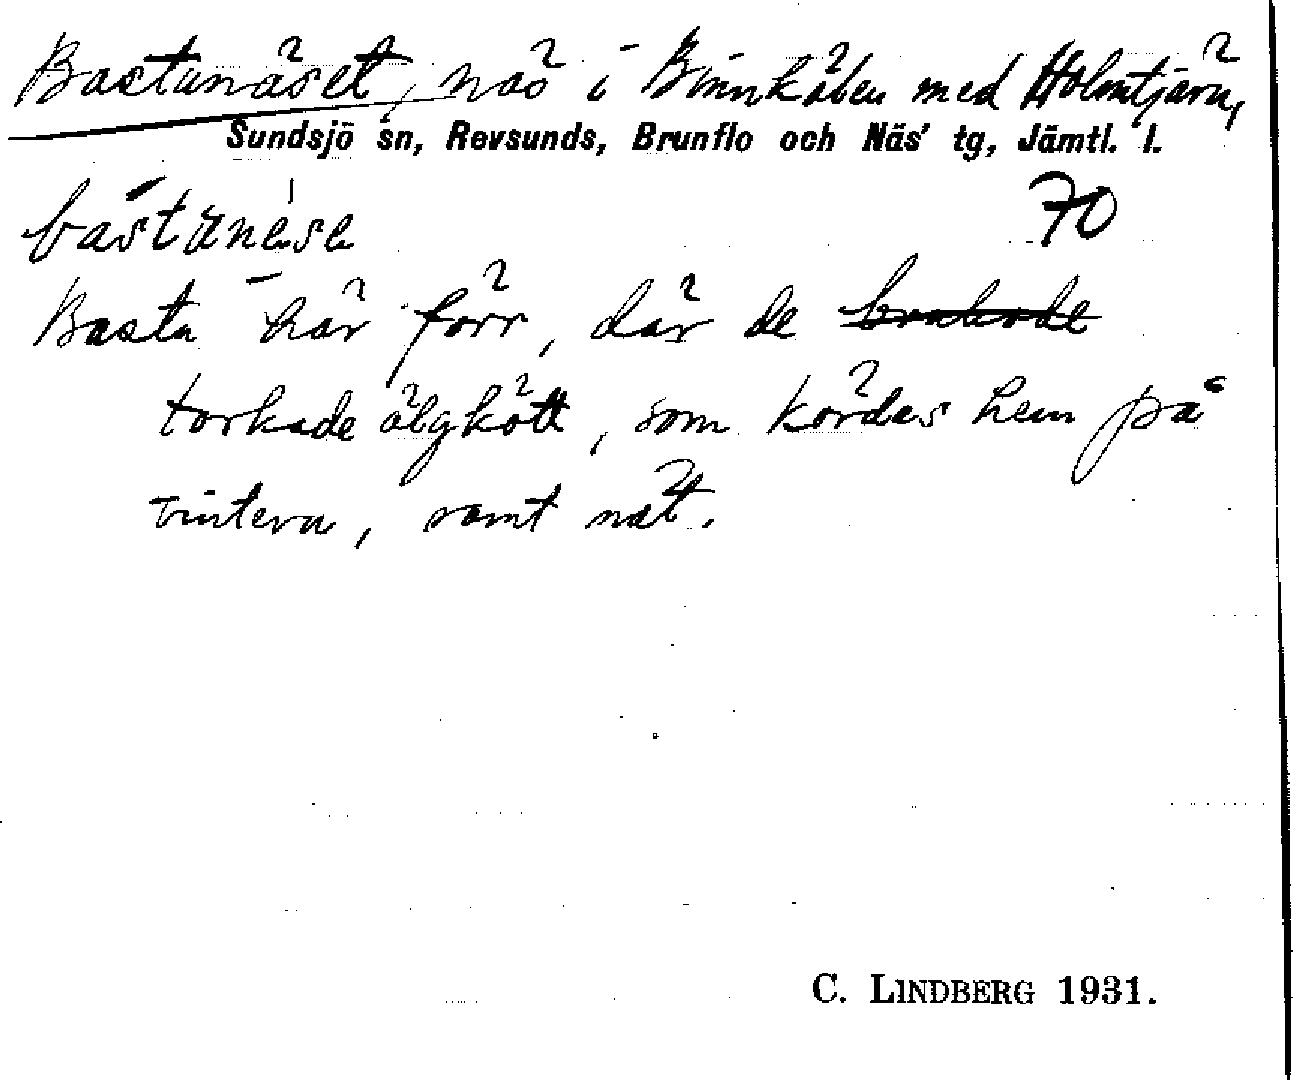 Bastunäset, näs i Binnkälen med Holmtjärn,
Sundsjö sn, Revsunds, Brunflo och Näs' tg, Jämtl. l.
70
Bastu här förr, där de
torkade älgkött, som kördes hem på
vintern, samt nät.
C. LINDBERG 1931.